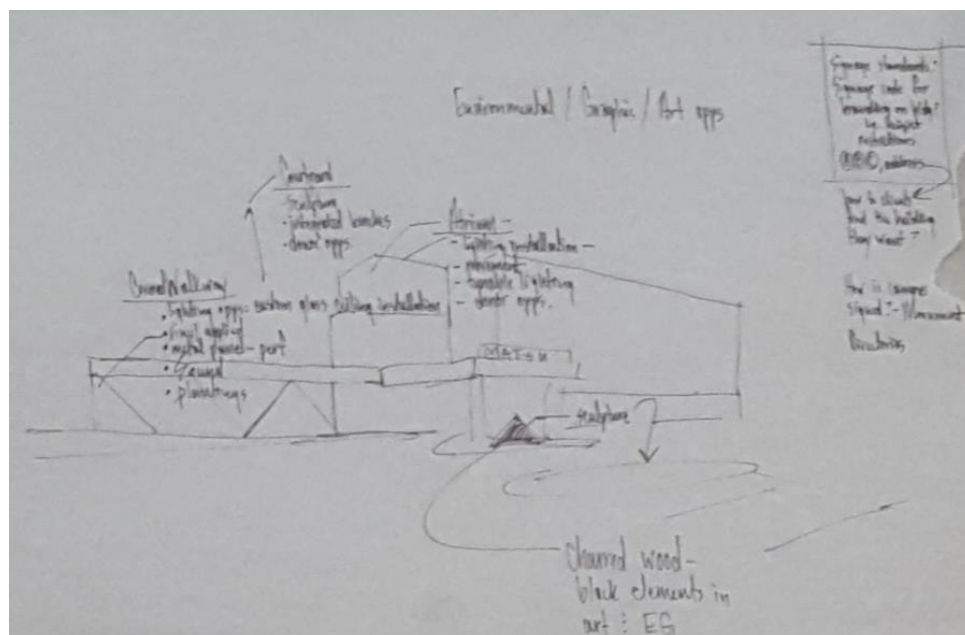 Environmental / Graphic / Art opps
Signage standards?
Signage code for
branding on bldg?
height
restrictions
address
how do students
find the building
they want?
How is campus
signed? - Monument
Directories
Courtyard
- sculpture
- integrated benches
- donor opps
Atrium -
- lighting installation -
- movement
- tunable lighting
- donor opps.
Covered Walkway
• lighting opps - custom glass ceiling installation
• metal panel - perf
• Sound
• plantings
sculpture
charred wood -
black elements in
art : EG